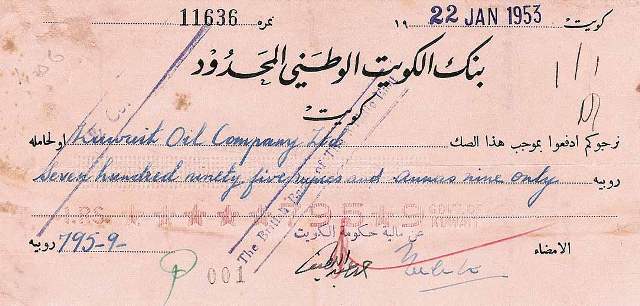 11636 نمره ١٩ 22 JAN 1953 كويت
بنك الكويت الوطني المحدود
كويت
نرجوكم ادفعوا بموجب هذا الصك Kuwait Oil Company Ltd اولحامله
seven hundred ninety five rupees and annas nine only روبيه
I.RS. 795 9 GOVT. OF KUWAIT
The British Bank of The
عن مالية حكومة الكويت
795-9- روبيه الامضاء
001